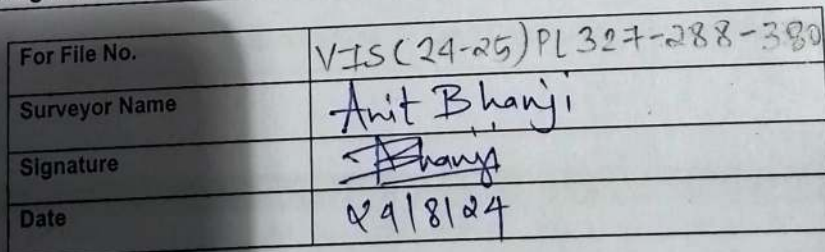 For File No. VIS(24-25)PL327-288-380
Surveyor Name Anit Bhanji
Signature Bhanji
Date 29/8/24